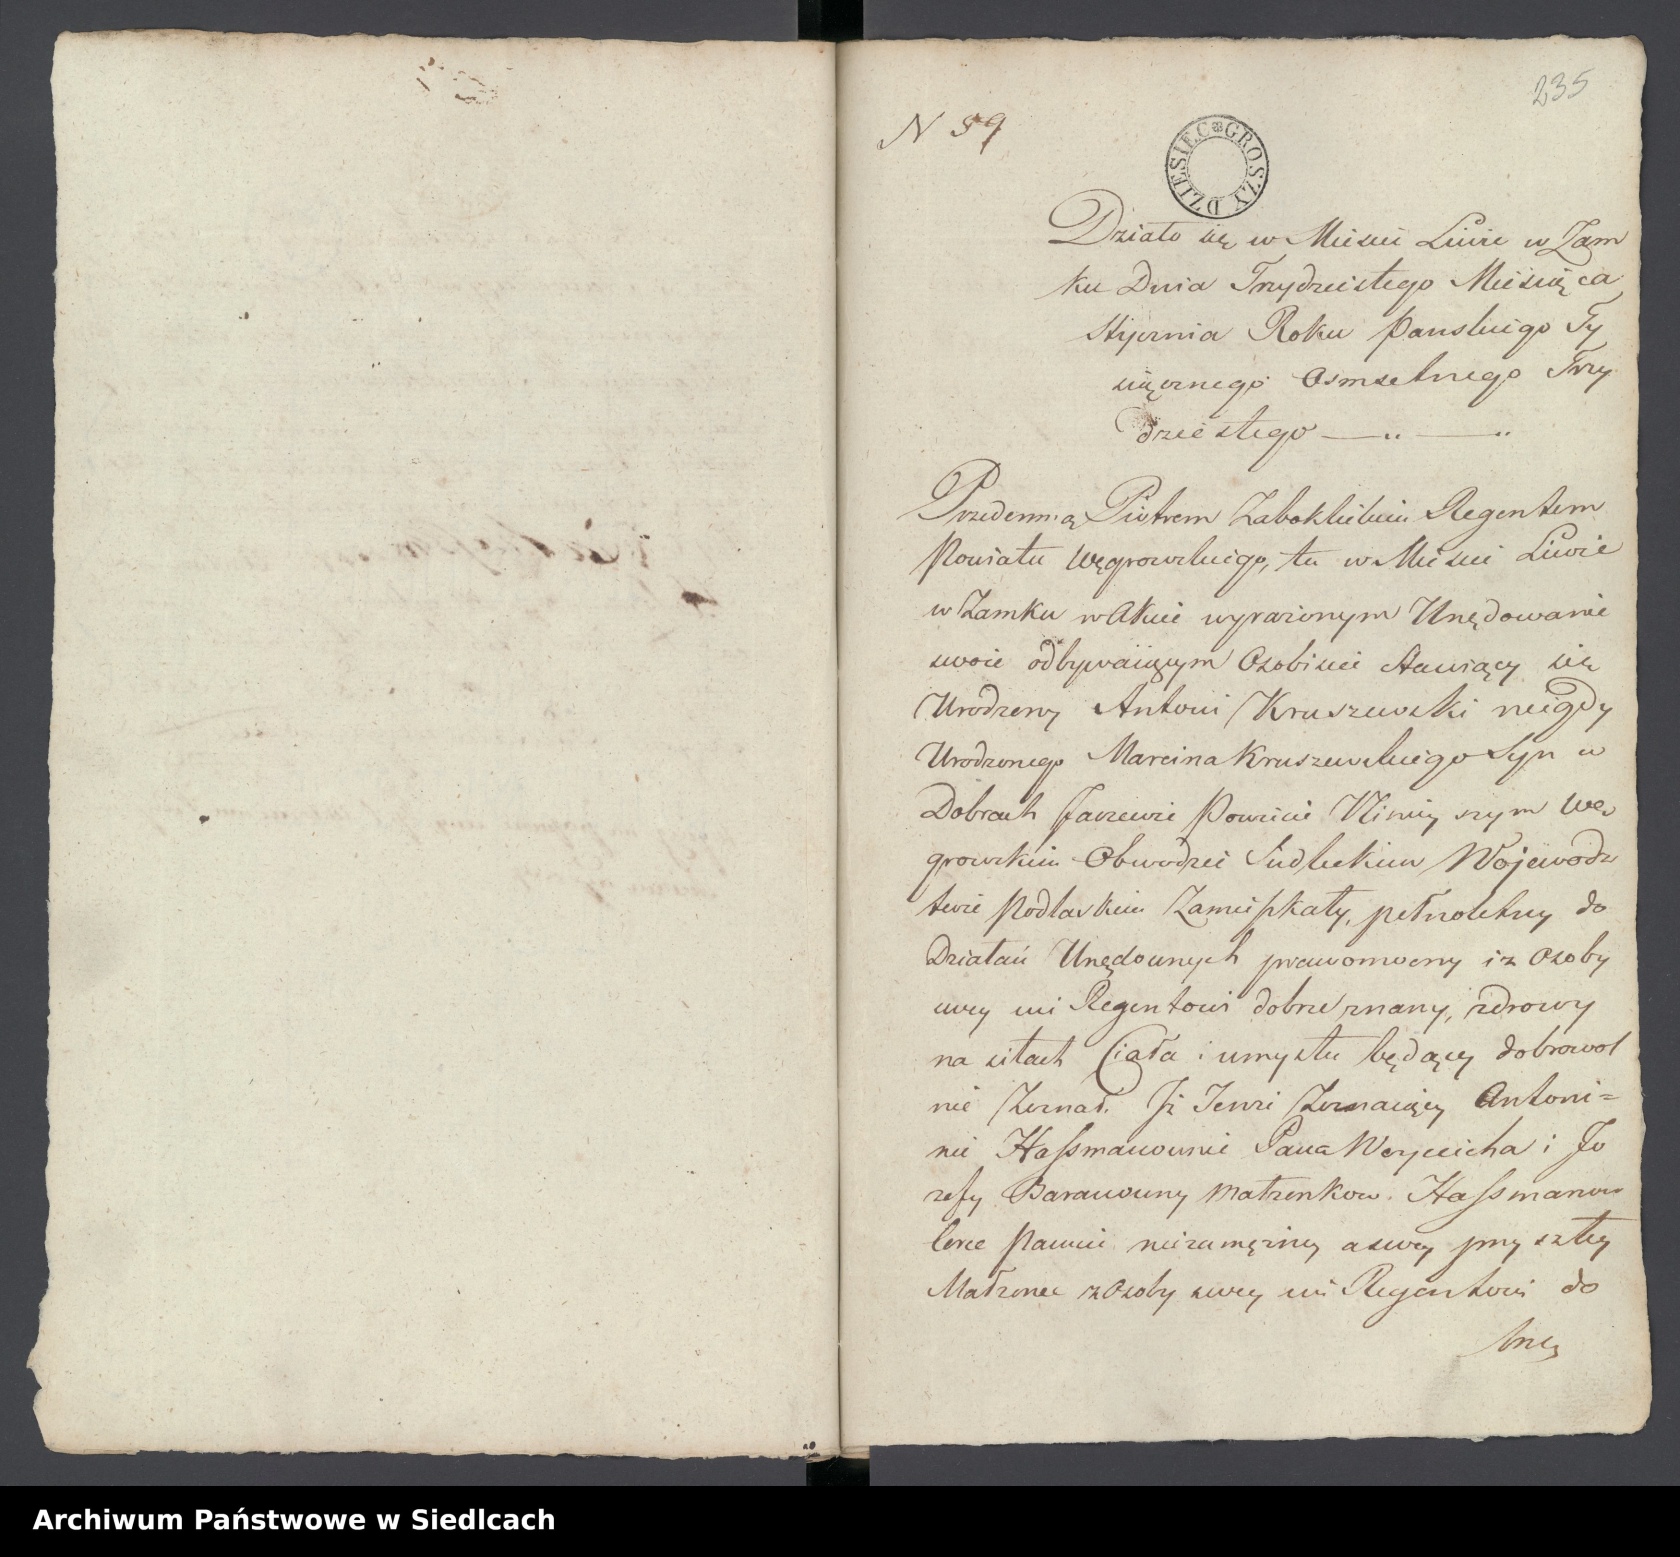 235
N 59
DZIESIEC GROSZY
Działo się w Mieście Liwie w Zam
ku Dnia Trzydziestego Miesiąca
Stycznia Roku Pańskiego Ty
siącznego Osmsetnego Trzy
dziestego
Przedemną Piotrem Zaboklickim Regentem
Powiatu Węgrowskiego, tu w Mieście Liwie
w Zamku w Akcie wyrażonym Urzędowanie
swoie odbywaiącym Osobiście stawiący się
Urodzony Antoni Kruszewski niegdy
Urodzonego Marcina Kruszewskiego Syn w
Dobrach Jarzewie Powiecie Ninieyszym Wę
growskim Obwodzie Siedleckim Wojewódz
twie Podlaskim Zamieszkały, pełnoletny do
Działań Urzędownych prawomocny i z Osoby
swey mi Regentowi dobrze znany, zdrowy
na siłach Ciała i umysłu będący dobrowol
nie Zeznał. Iż Tenże Zeznaiący Antoni=
nie Hassmanownie Pana Woyciecha i Jó
zefy Baranowny Małżonków Hassmanow
Córce Pannie niezamężney a swey przyszłey
Małżonce z Osoby swey mi Regentowi do
brze
Archiwum Państwowe w Siedlcach